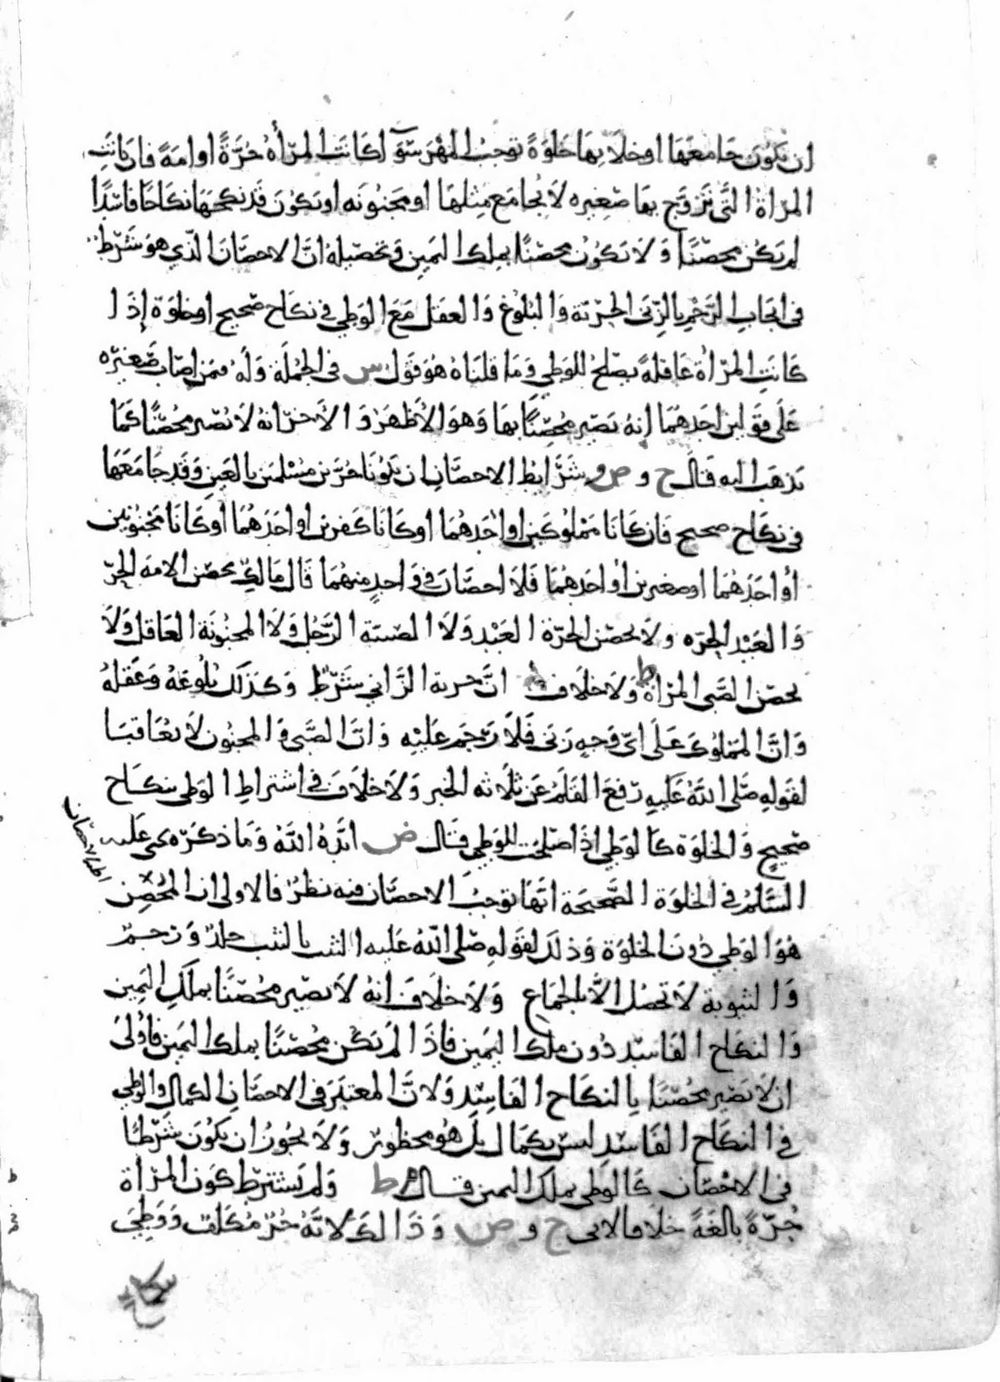 ان يكون جامعها او خلا بها خلوة توجب المهر سوآ كانت المرأة حُرّةً او امةً فان كانت
المرأة التي تزوج بها صغيره لا يُجامَع مثلها او مجنونه او يكون قد نكحها نكاحًا فاسدًا
لم يكن محصنًا ولا يكون محصنًا بملك اليمين وتحصيله انّ الاحصان الذي هو شرط
في ايجاب الرجم بالزنى الحرّيّة والبلوغ والعقل مع الوطي في نكاح صحيح او خلوة إذا
كانت المرأة عاقلةً تصلح للوطي وما قلناه هو قول س في الجملة وله فمن اصاب صغيره
على قولين احدهما انه يصير محصنًا بها وهو الأظهر والاخر انه لا يصير محصنًا كما
يذهب اليه قال ح و ص و شرايط الاحصان ان يكونا حُرّين مسلمين بالغين وقد جامعها
في نكاح صحيح فان كانا مملوكين او احدهما او كانا كفرين او احدهما او كانا مجنونين
أو احدهما او صغيرين او احدهما فلا احصان في واحد منهما قال مالك يحصن الامة الحرّ
والعبد الحره ولا يحصن الحرّة العبد ولا الصبيّة الرّجل ولا المجنونة العاقل ولا
يحصن الصبي المرأة ط ولا خلاف انّ حرية الزاني شرط وكذلك بلوغه وعقله
وانّ المملوك على ايّ وجهٍ زنى فلا رجم عليه وانّ الصّبي والمجنون لا يعاقبا
لقوله صلى الله عليه رفع القلم عن ثلاثه الخبر ولا خلاف في اشتراط الوطي بنكاح
صحيحٍ والخلوة كالوطي اذا صلحت للوطي قال ض ايّده الله وما ذكره يحيى عليه
السلم في الخلوة الصّحيحة انّها توجب الاحصان فيه نظرٌ فالاولى ان المُحصِن
الاحصان
هو الوطي دون الخلوة وذلك لقوله صلى الله عليه الثيب بالثيب جلدٌ ورجم
والثيوبة لا تحصل الّا بالجماع ولا خلاف انه لا يصير محصنًا بملك اليمين
والنكاح الفاسد دون ملك اليمين فاذا لم يكن محصنًا بملك اليمين فأولى
ان لا يصير محصنًا بالنكاح الفاسد ولانّ المعتبر في الاحصان الكمال والوطي
في النكاح الفاسد ليس بكمال بل هو محظور ولا يجوز ان يكون شرطًا
في الاحصان كالوطي بملك اليمين قال ط ولم يشترط كون المرأة
حُرّةً بالغةً خلافا لابي ح و ص وذلك لانّه حُرٌّ مكلف ووطي
بنكاح